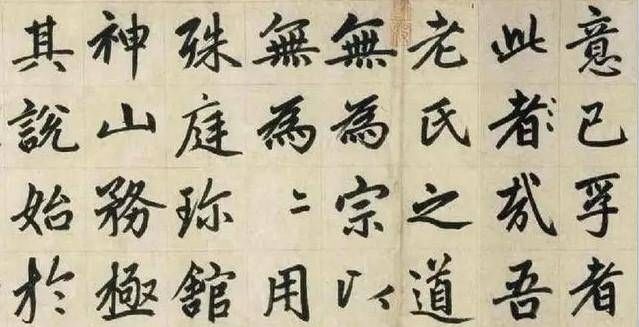 意已孚者
此者哉吾
老氏之道
無為宗以
無為〻用
殊庭珎舘
神山務極
其說始於